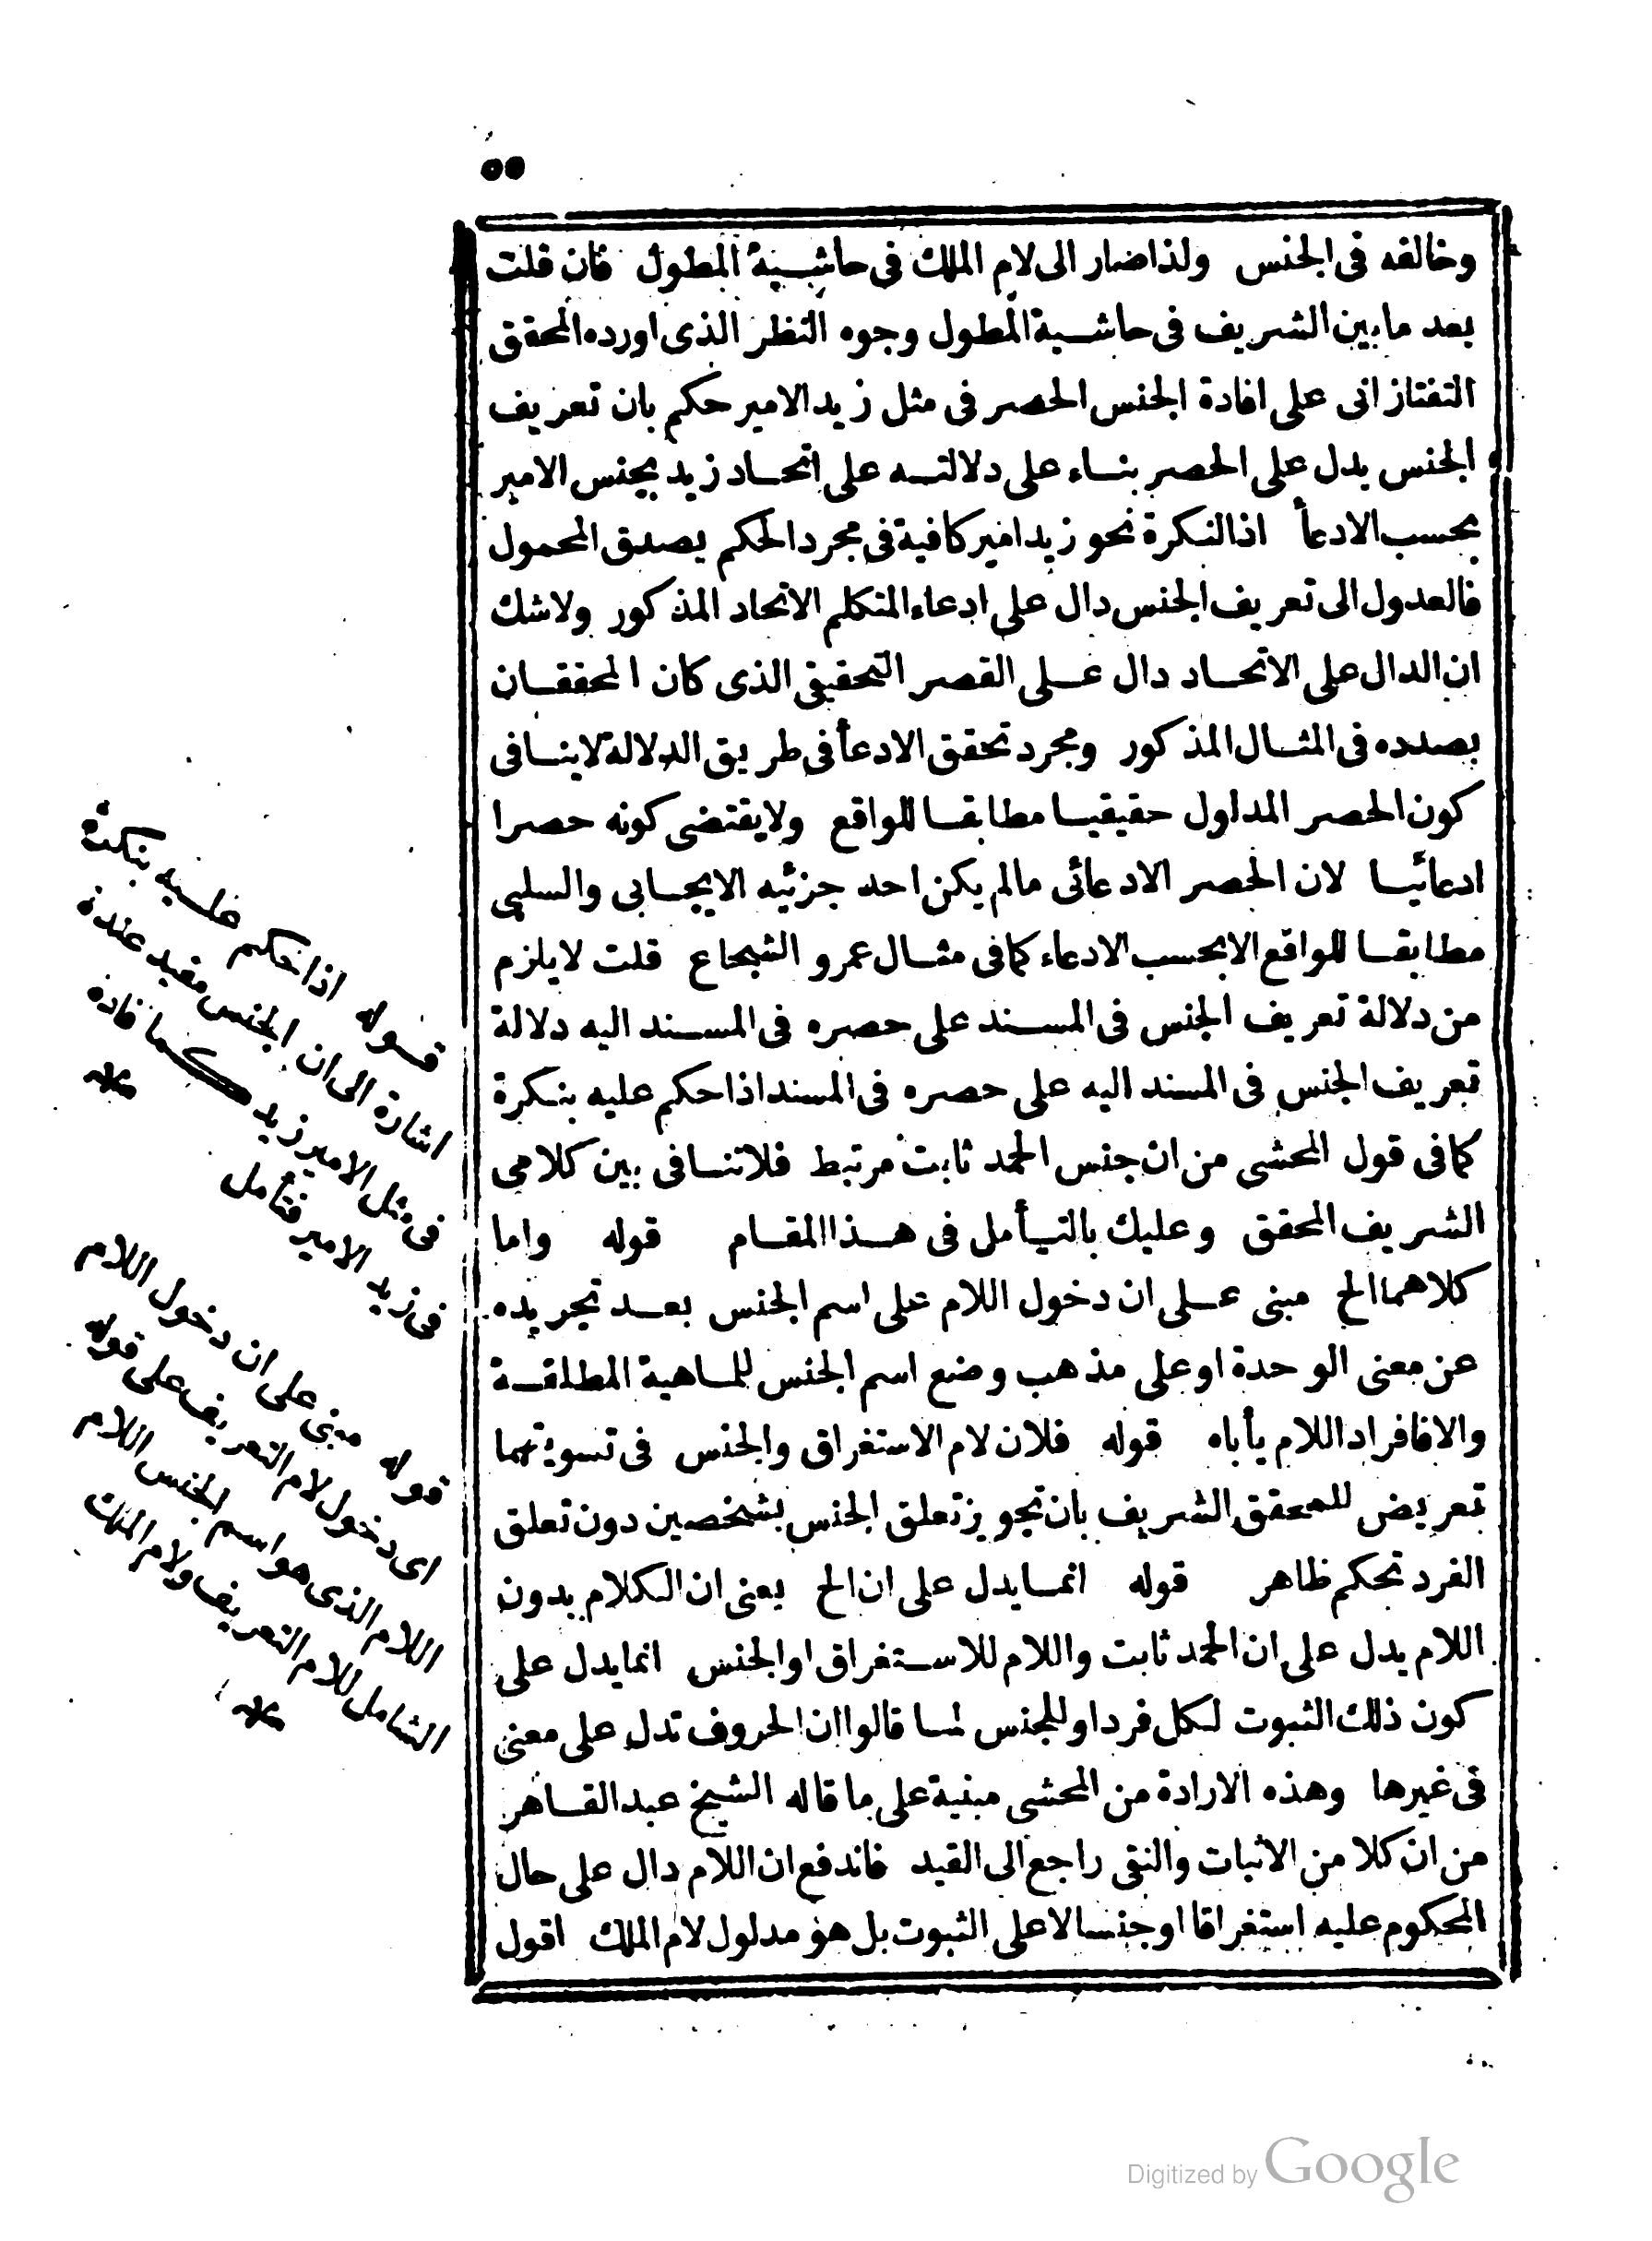 ٥٥
وخالفه فى الجنس ولذا ضار الى لام الملك فى حاشية المطول فان قلت
بعد ما بين الشريف فى حاشية المطول وجوه النظر الذى اورده المحقق
التفتازانى على افادة الجنس الحصر فى مثل زيد الامير حكم بان تعريف
الجنس يدل على الحصر بناء على دلالته على اتحاد زيد بجنس الامير
بحسب الادعأ اذ النكرة نحو زيد امير كافية فى مجرد الحكم يصدق المحمول
فالعدول الى تعريف الجنس دال على ادعاء المتكلم الاتحاد المذكور ولاشك
ان الدال على الاتحاد دال على القصر التحقيقى الذى كان المحققان
بصدده فى المثال المذكور ومجرد تحقق الادعأ فى طريق الدلالة لاينافى
كون الحصر المدلول حقيقيا مطابقا للواقع ولايقتضى كونه حصرا
ادعائيا لان الحصر الادعائى مالم يكن احد جزئيه الايجابى والسلبى
مطابقا للواقع الابحسب الادعاء كما فى مثال عمرو الشجاع قلت لايلزم
من دلالة تعريف الجنس فى المسند على حصره فى المسند اليه دلالة
تعريف الجنس فى المسند اليه على حصره فى المسند اذا حكم عليه بنكرة
كما فى قول المحشى من ان جنس الحمد ثابت مرتبط فلا تنافى بين كلامى
الشريف المحقق وعليك بالتأمل فى هذا المقام قوله واما
كلاهما الخ مبنى على ان دخول اللام على اسم الجنس بعد تجريده
عن معنى الوحدة او على مذهب وضع اسم الجنس للماهية المطلقة
والا فافراد اللام يأباه قوله فلان لام الاستغراق والجنس فى تسويتهما
تعريض للمحقق الشريف بان تجويز تعلق الجنس بشخصين دون تعلق
الفرد تحكم ظاهر قوله انما يدل على ان الخ يعنى ان الكلام بدون
اللام يدل على ان الحمد ثابت واللام للاستغراق او الجنس انما يدل على
كون ذلك الثبوت لكل فرد او للجنس لما قالوا ان الحروف تدل على معنى
فى غيرها وهذه الارادة من المحشى مبنية على ما قاله الشيخ عبد القاهر
من ان كلا من الاثبات والنفى راجع الى القيد فاندفع ان اللام دال على حال
المحكوم عليه استغراقا او جنسا لا على الثبوت بل هو مدلول لام الملك اقول
قوله اذا حكم عليه بنكرة
اشارة الى ان الجنس مفيد عنده
فى مثل الامير زيد كما فاده
فى زيد الامير فتأمل
قوله مبنى على ان دخول اللام
اى دخول لام التعريف على قوله
اللام الذى هو اسم الجنس اللام
الشامل للام التعريف ولام الملك
Digitized by Google